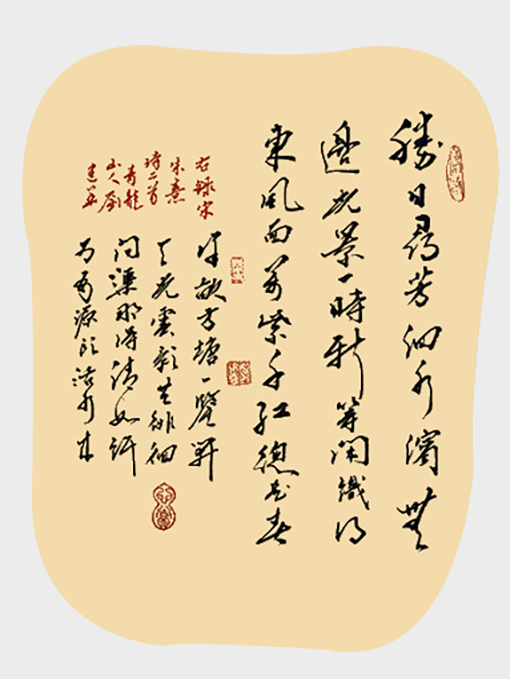 勝日尋芳泗水濱無
邊光景一時新等閑識得
東風面萬紫千紅總是春
半畝方塘一鑒開
天光雲影共徘徊
問渠那得清如許
為有源頭活水來
右錄宋
朱熹
詩二首
青龍
山人劉